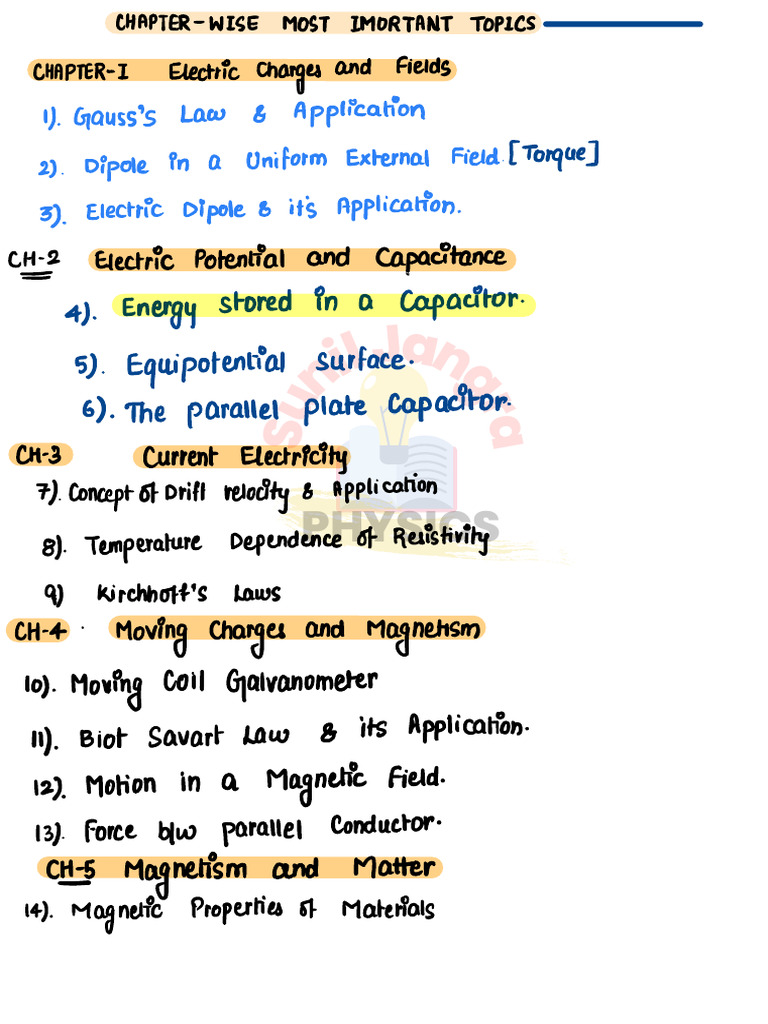 CHAPTER-WISE MOST IMORTANT TOPICS
CHAPTER-I Electric Charges and Fields
1). Gauss's Law & Application
2). Dipole in a Uniform External Field. [Torque]
3). Electric Dipole & it's Application.
CH-2 Electric Potential and Capacitance
4). Energy stored in a Capacitor.
5). Equipotential Surface.
6). The parallel plate Capacitor.
Sunil Jangra
CH-3 Current Electricity
7). Concept of Drift velocity & Application
PHYSICS
8). Temperature Dependence of Resistivity
9) Kirchhoff's Laws
CH-4 Moving Charges and Magnetism
10). Moving Coil Galvanometer
11). Biot Savart Law & its Application.
12). Motion in a Magnetic Field.
13). Force b/w parallel Conductor.
CH-5 Magnetism and Matter
14). Magnetic Properties of Materials